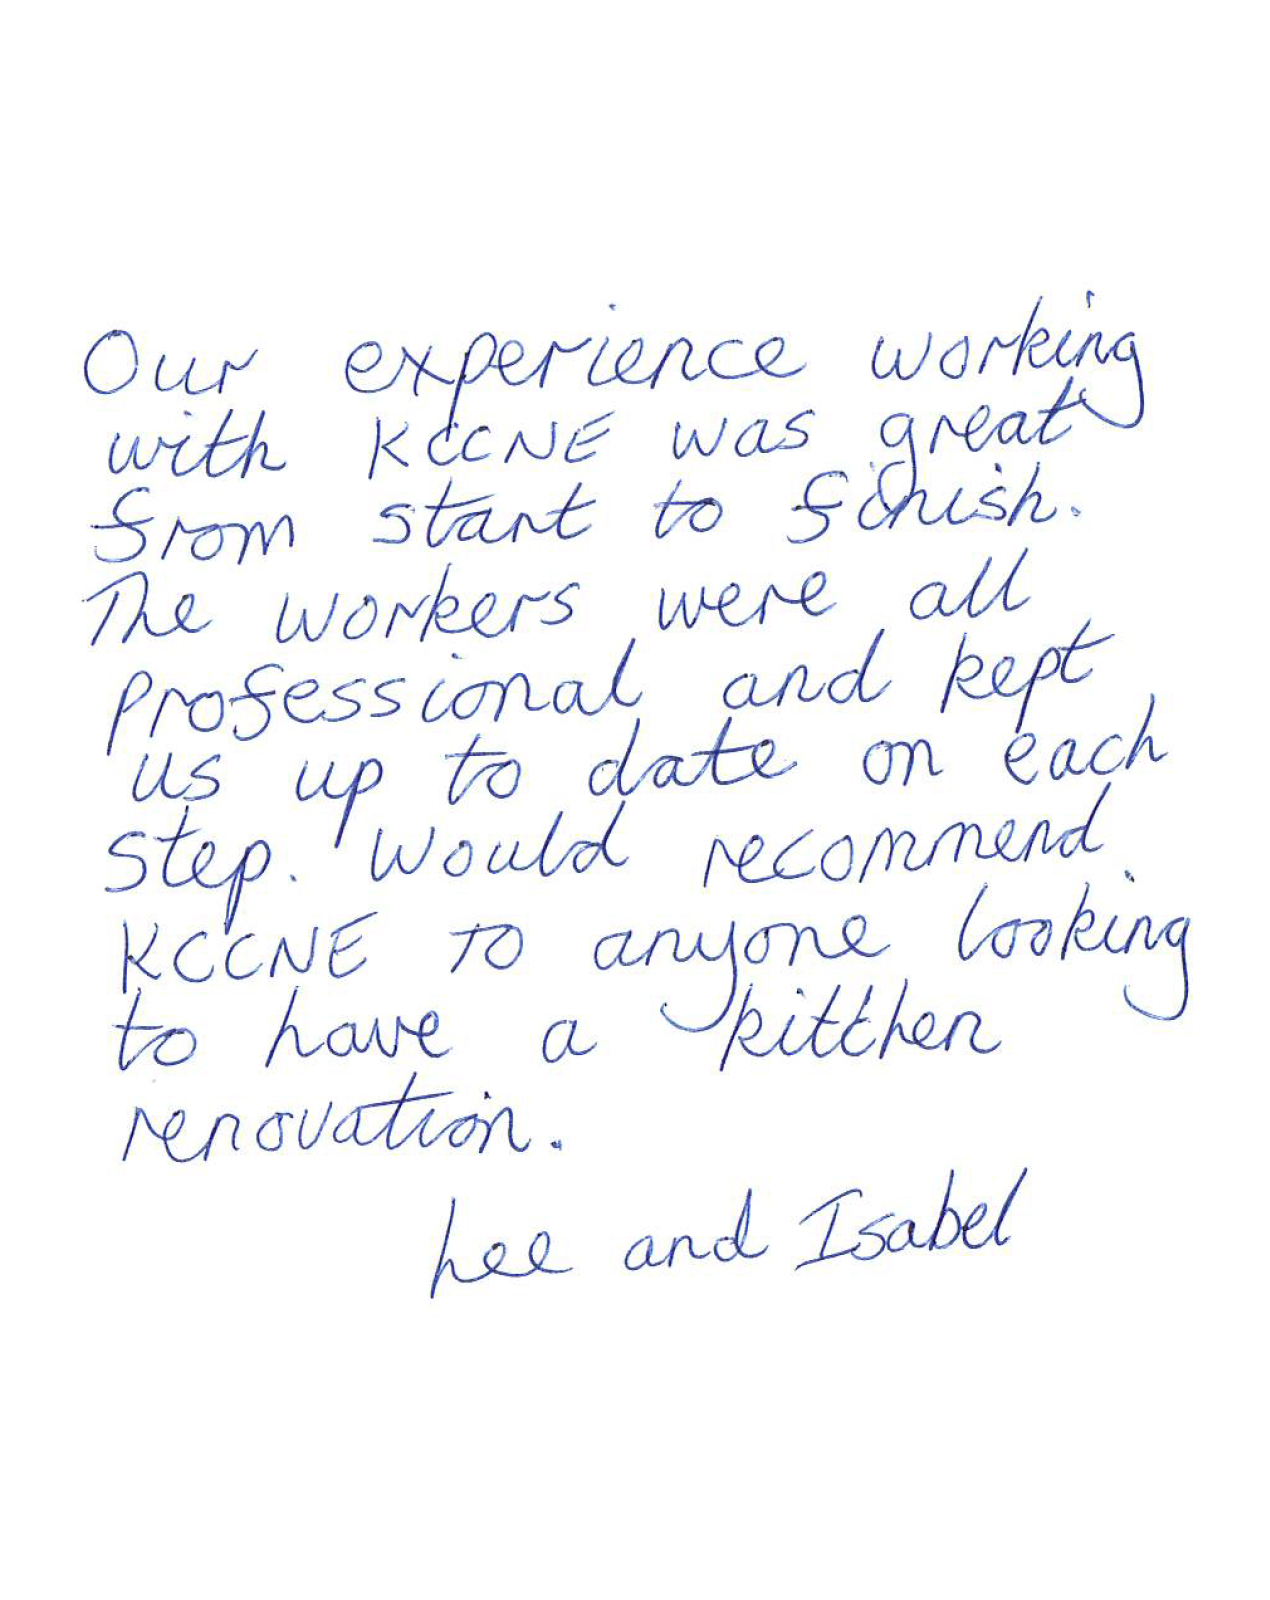 Our experience working
with KCCNE was great
from start to finish.
The workers were all
professional and kept
us up to date on each
step. Would recommend
KCCNE to anyone looking
to have a kitchen
renovation.
Lee and Isabel